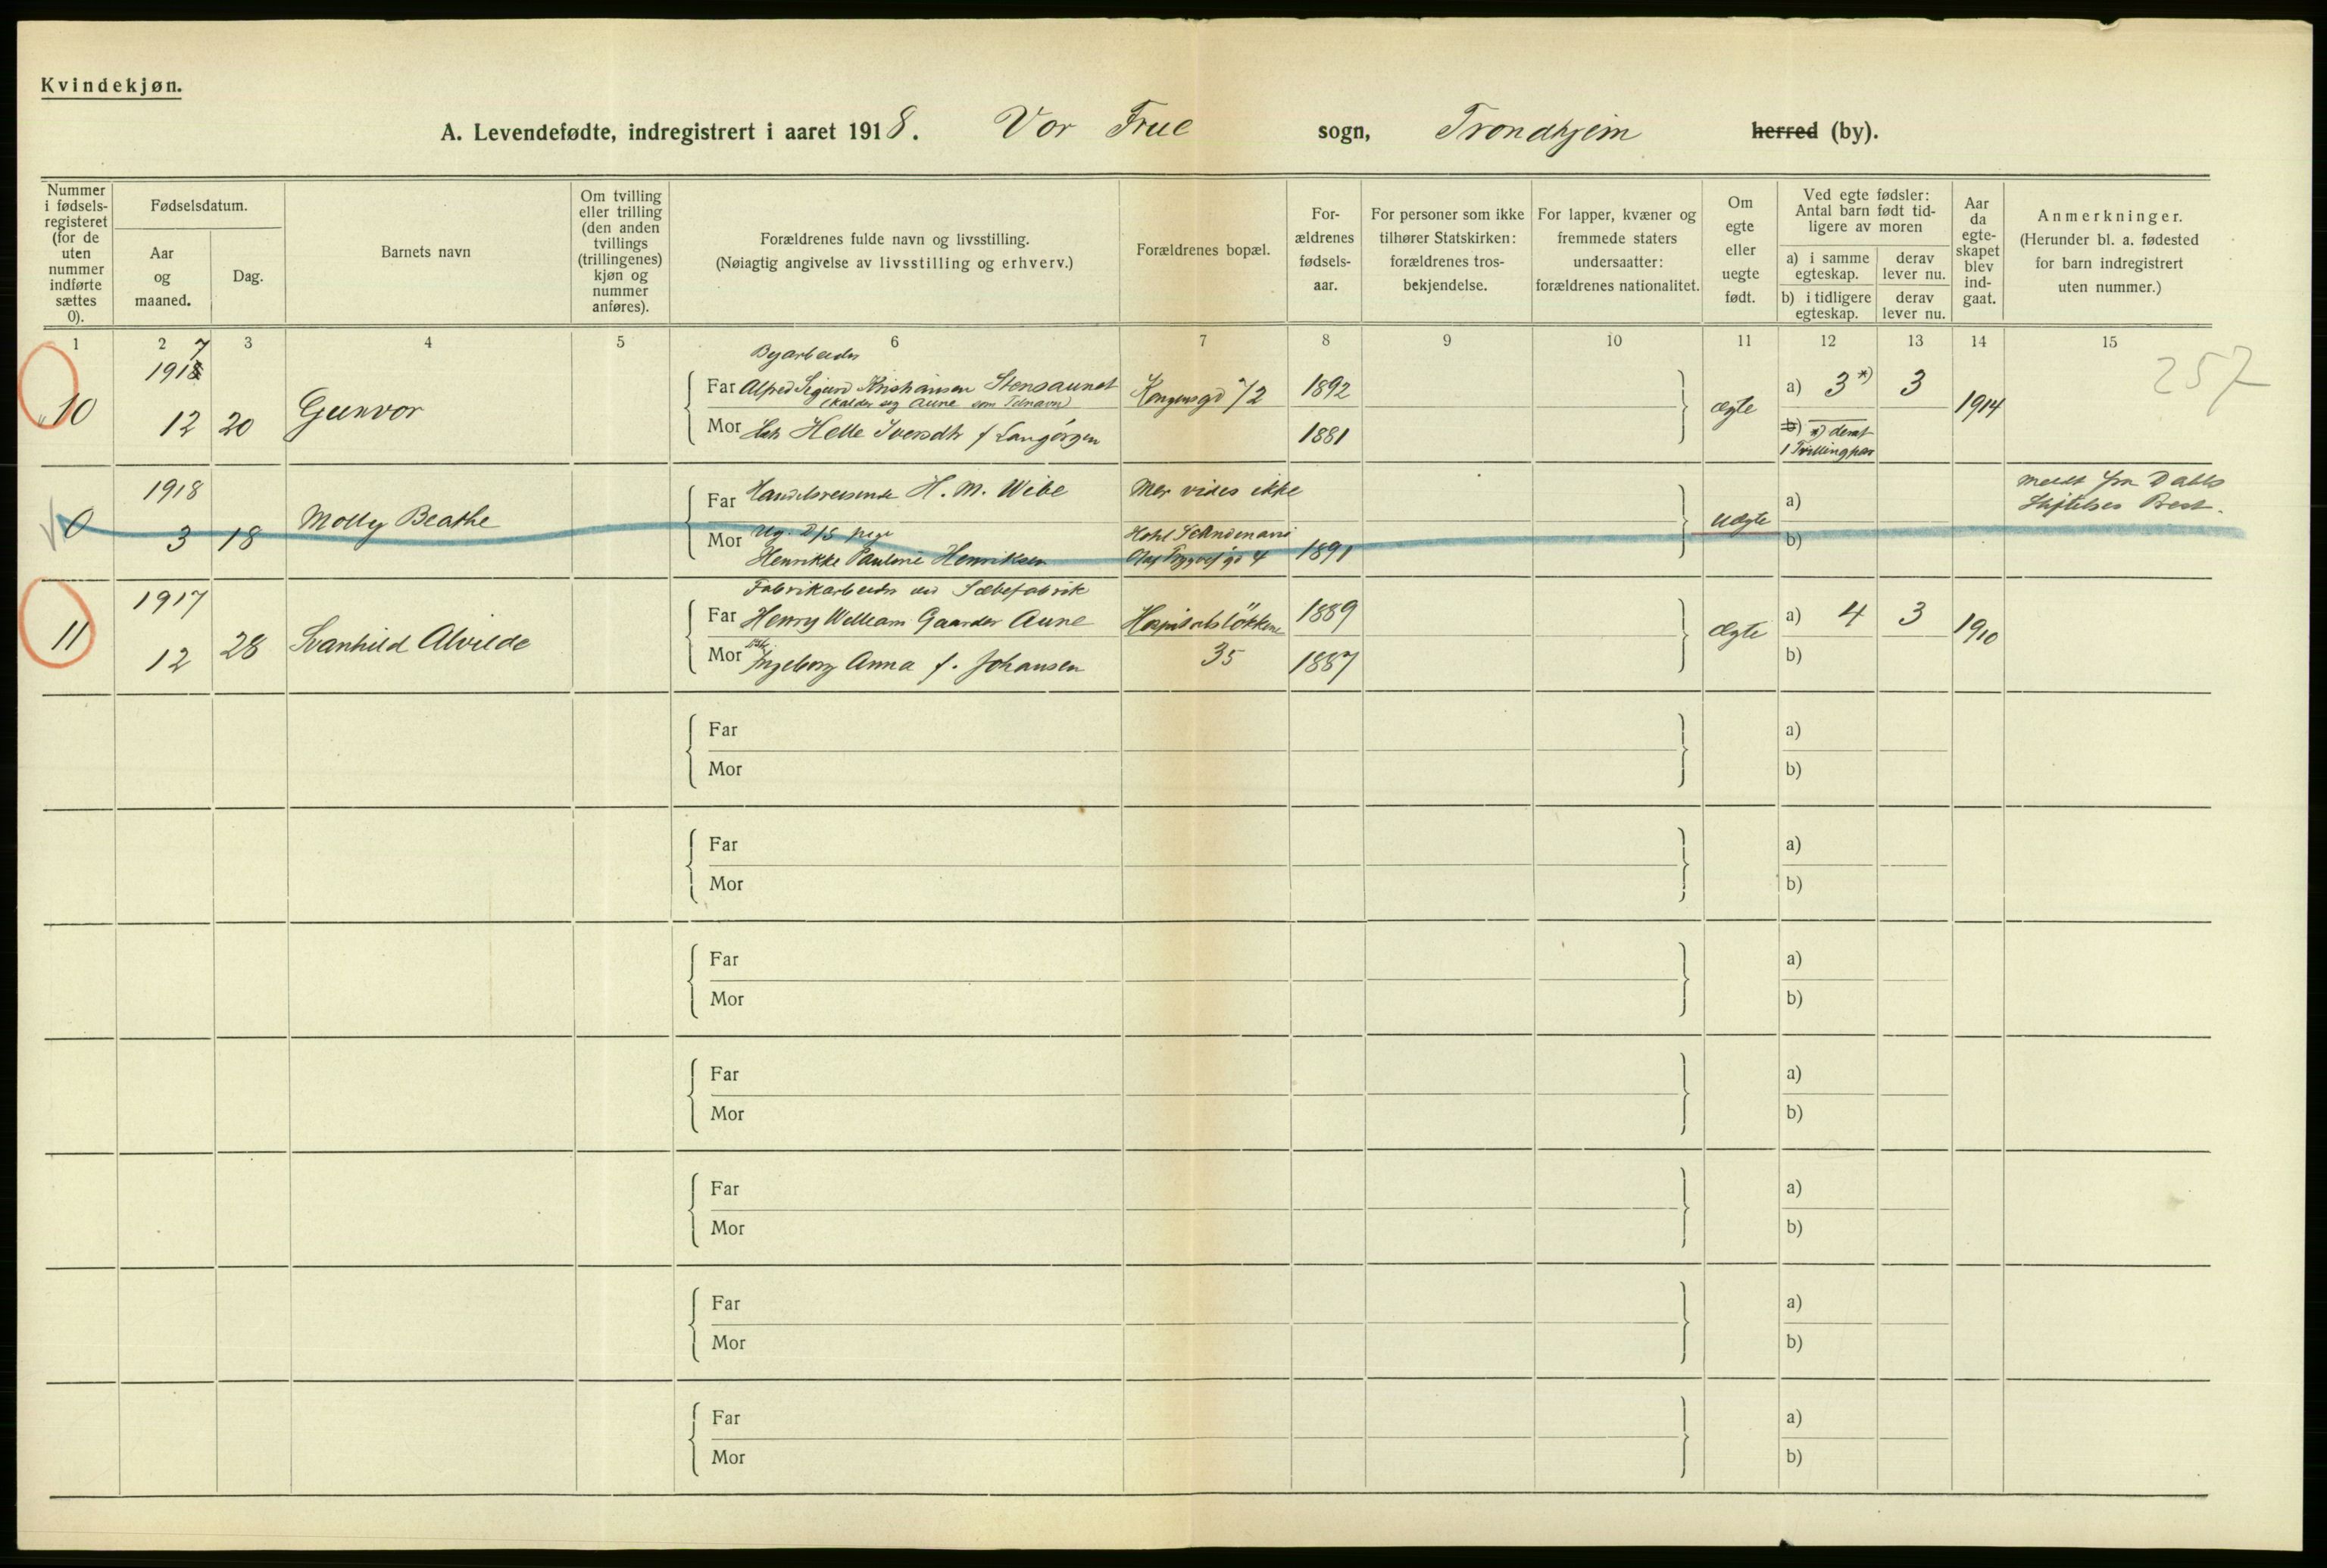 Kvindekjøn.
A. Levendefødte, indregistrert i aaret 1918. Vor Frue sogn, Trondhjem herred (by).
Nummer i fødselsregisteret (for de uten nummer indførte sættes 0).
Fødselsdatum.
Aar og maaned.
Dag.
Barnets navn
Om tvilling eller trilling (den anden tvillings (trillingenes) kjøn og nummer anføres).
Forældrenes fulde navn og livsstilling.
(Nøiagtig angivelse av livsstilling og erhverv.)
Forældrenes bopæl.
For-ældrenes fødsels-aar.
For personer som ikke tilhører Statskirken: forældrenes tros-bekjendelse.
For lapper, kvæner og fremmede staters undersaatter: forældrenes nationalitet.
Om egte eller uegte født.
Ved egte fødsler: Antal barn født tid-ligere av moren
a) i samme egteskap.
derav lever nu.
b) i tidligere egteskap.
derav lever nu.
Aar da egte-skapet blev ind-gaat.
Anmerkninger.
(Herunder bl. a. fødested for barn indregistrert uten nummer.)
1 2 3 4 5 6 7 8 9 10 11 12 13 14 15
257
10 1917 12 20 Gunvor
Byarbeider
Far Alfred Sigurd Kristiansen Stensaunet
(kalder sig Aune som
Mor Helle Iversdtr f Langørgen
Kongensgd 72
1892
1881
ægte
a) 3*) 3
b) *) deraf
1 Tvillingpar
1914
0 1918 3 18 Molly Beathe
Far Handelsreisende H. M. Wibe
Mor Ug. pige
Henrikke Pauline Henriksen
Mer vides ikke
Hotel
Olaf Trygves gd 4
1891
uægte
a)
b)
meldt fra Dahls
Stiftelses Best.
11 1917 12 28 Svanhild Alvilde
Fabrikarbeider ved Sæbefabrik
Far Henry William Gaarder Aune
Mor Ingeborg Anna f. Johansen
Hospitalsløkken
35
1889
1887
Ægte
a) 4 3
b)
1910
Far a)
Mor b)
Far a)
Mor b)
Far a)
Mor b)
Far a)
Mor b)
Far a)
Mor b)
Far a)
Mor b)
Far a)
Mor b)